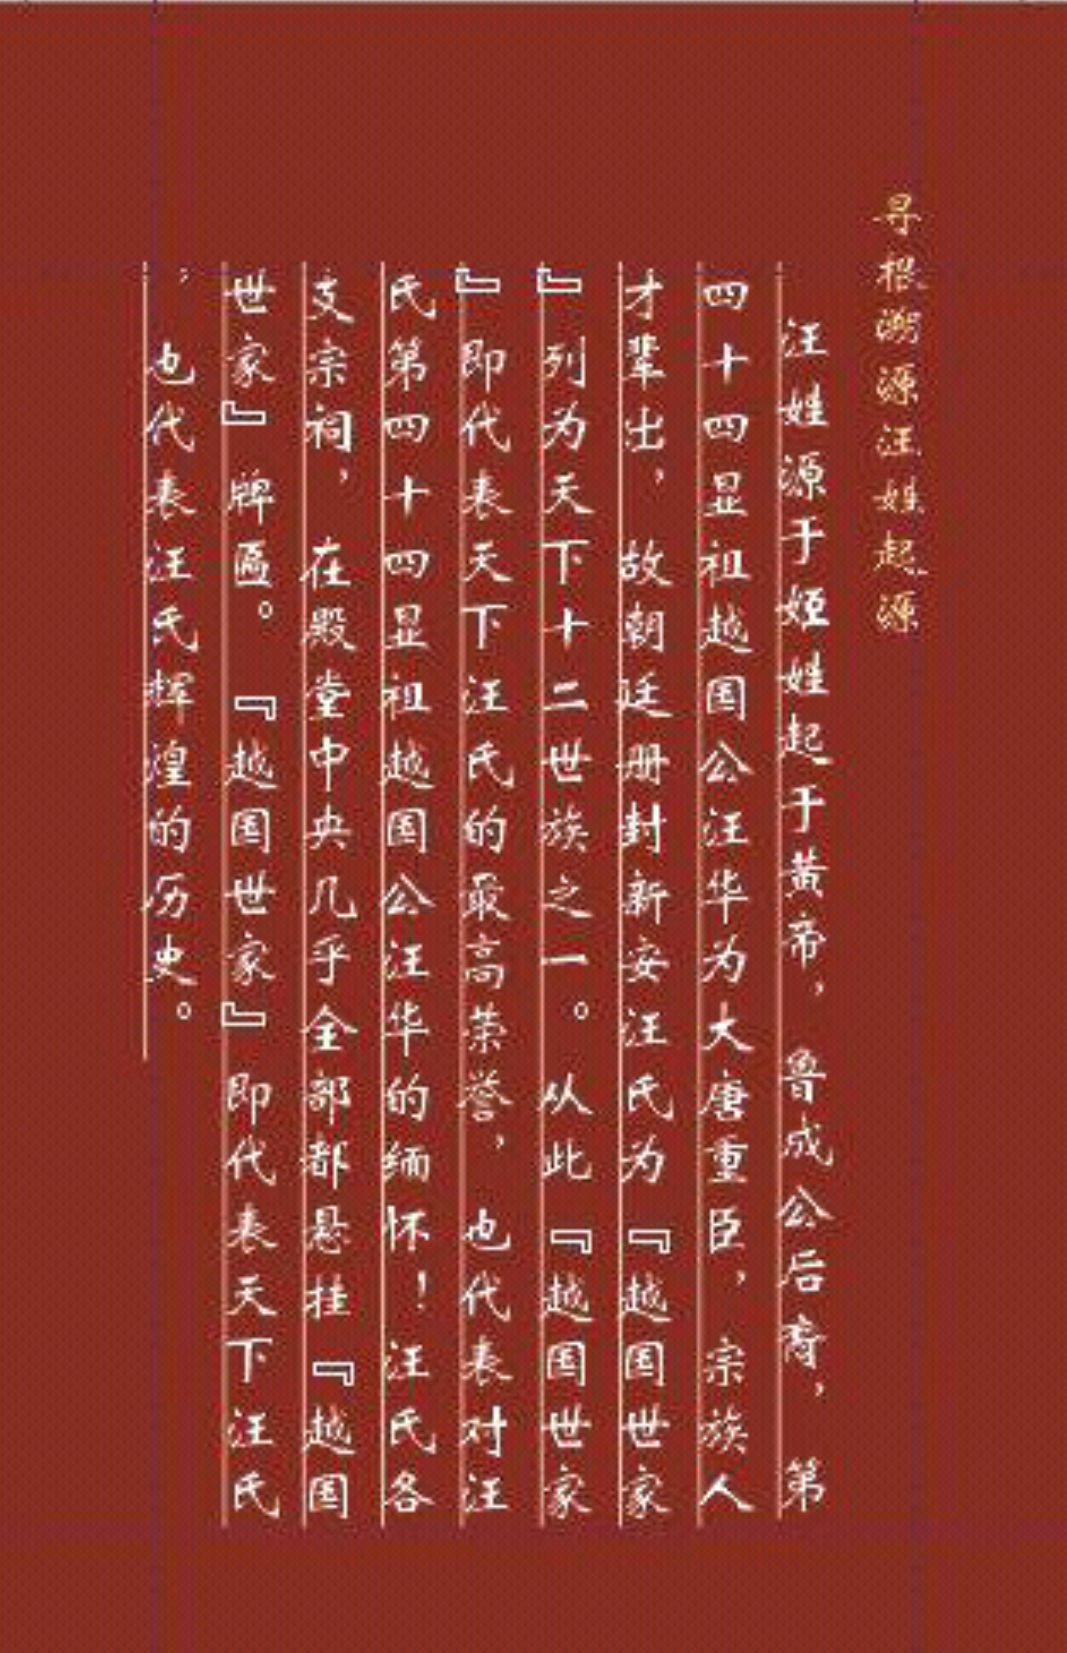 寻根溯源汪姓起源
汪姓源于姬姓起于黄帝，鲁成公后裔，第
四十四显祖越国公汪华为大唐重臣，宗族人
才辈出，故朝廷册封新安汪氏为『越国世家
』列为天下十二世族之一。从此『越国世家
』即代表天下汪氏的最高荣誉，也代表对汪
氏第四十四显祖越国公汪华的缅怀！汪氏各
支宗祠，在殿堂中央几乎全部都悬挂『越国
世家』牌匾。『越国世家』即代表天下汪氏
，也代表汪氏辉煌的历史。